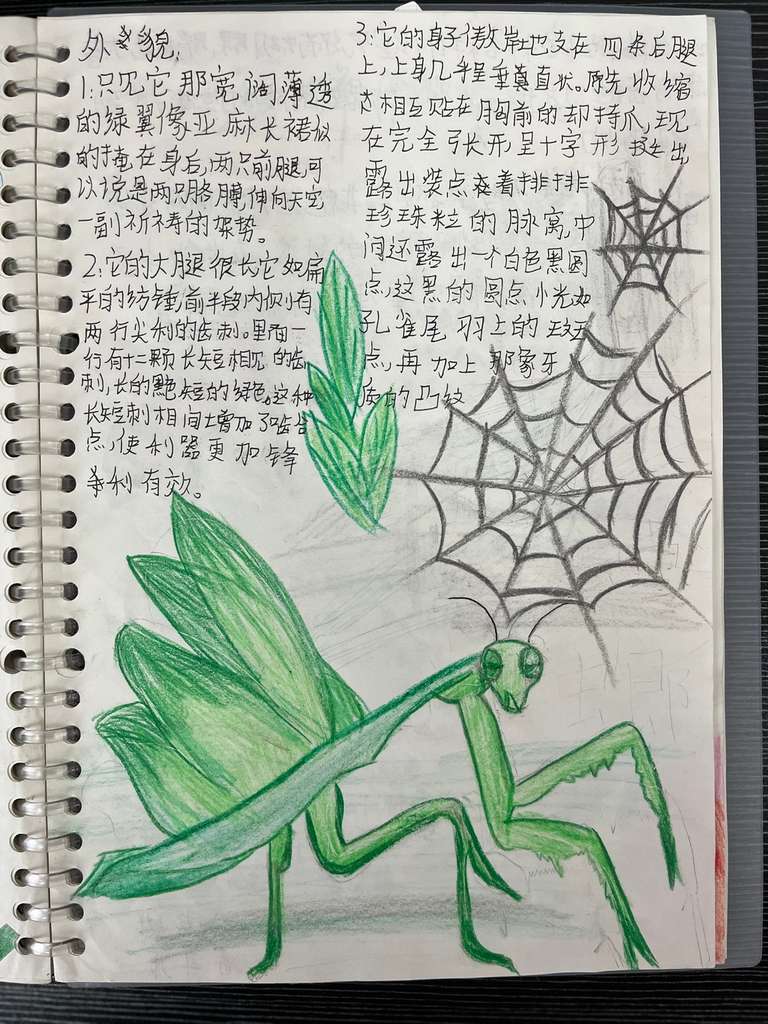 外貌:
1:只见它那宽阔薄透
的绿翼像亚麻长裙似
的掩在身后,两只前腿,可
以说是两只胳膊,伸向天空
一副祈祷的架势。
2:它的大腿很长它如扁
平的纺锤,前半段内侧有
两行尖利的齿刺。里面一
行有十二颗长短相见的齿
刺,长的黑色短的绿色。这种
长短刺相间土增加了啮合
点,使利器更加锋
利有效。
3:它的身子傲岸地支在四条后腿
上,上身几乎呈垂直状。原先收缩
相互贴在胸前的却持爪,现
在完全张开,呈十字形挺出
露出装点着排排
珍珠粒的腋窝,中
间还露出一个白色黑圆
点,这黑的圆点光如
孔雀尾羽上的斑
点,再加上那象牙
质的凸纹